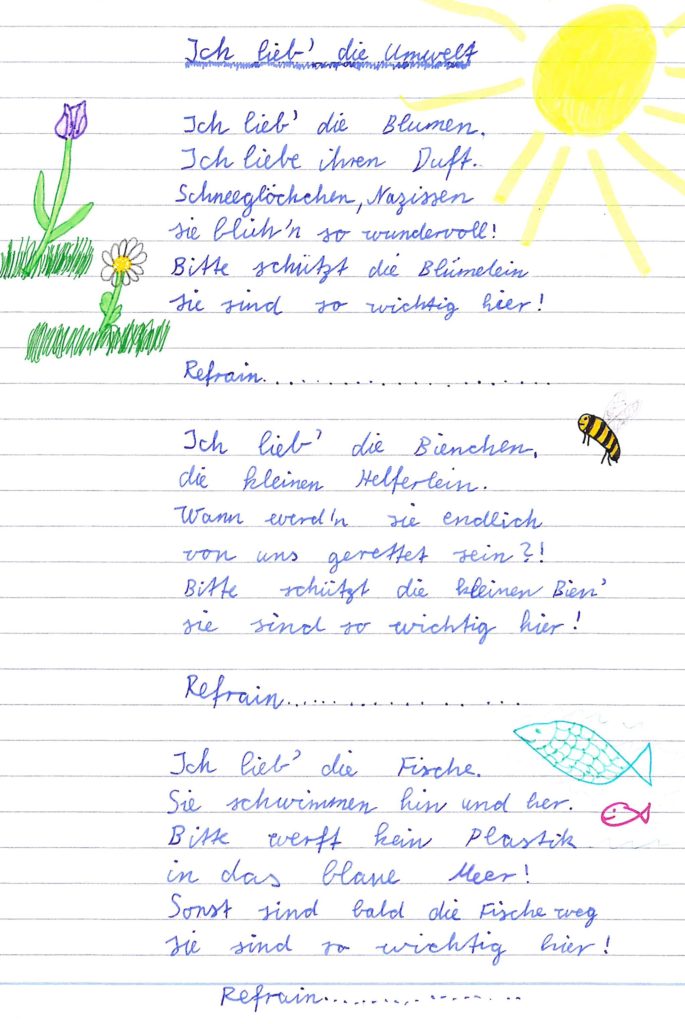 Ich lieb' die Umwelt
Ich lieb' die Blumen.
Ich liebe ihren Duft.
Schneeglöckchen, Nazissen
sie blüh'n so wundervoll!
Bitte schützt die Blümelein
sie sind so wichtig hier!
Refrain......................
Ich lieb' die Bienchen,
die kleinen Helferlein.
Wann werd'n sie endlich
von uns gerettet sein?!
Bitte schützt die kleinen Bien'
sie sind so wichtig hier!
Refrain..................
Ich lieb' die Fische.
Sie schwimmen hin und her.
Bitte werft kein Plastik
in das blaue Meer!
Sonst sind bald die Fische weg
sie sind so wichtig hier!
Refrain..................